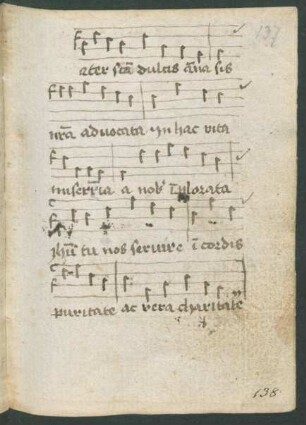 137
ater scā dulcis āna sis
nrā advocata In hac vita
miserria a nob' īplorata
Jhm tu nos servire ī cordis
puritate ac vera charitate
138